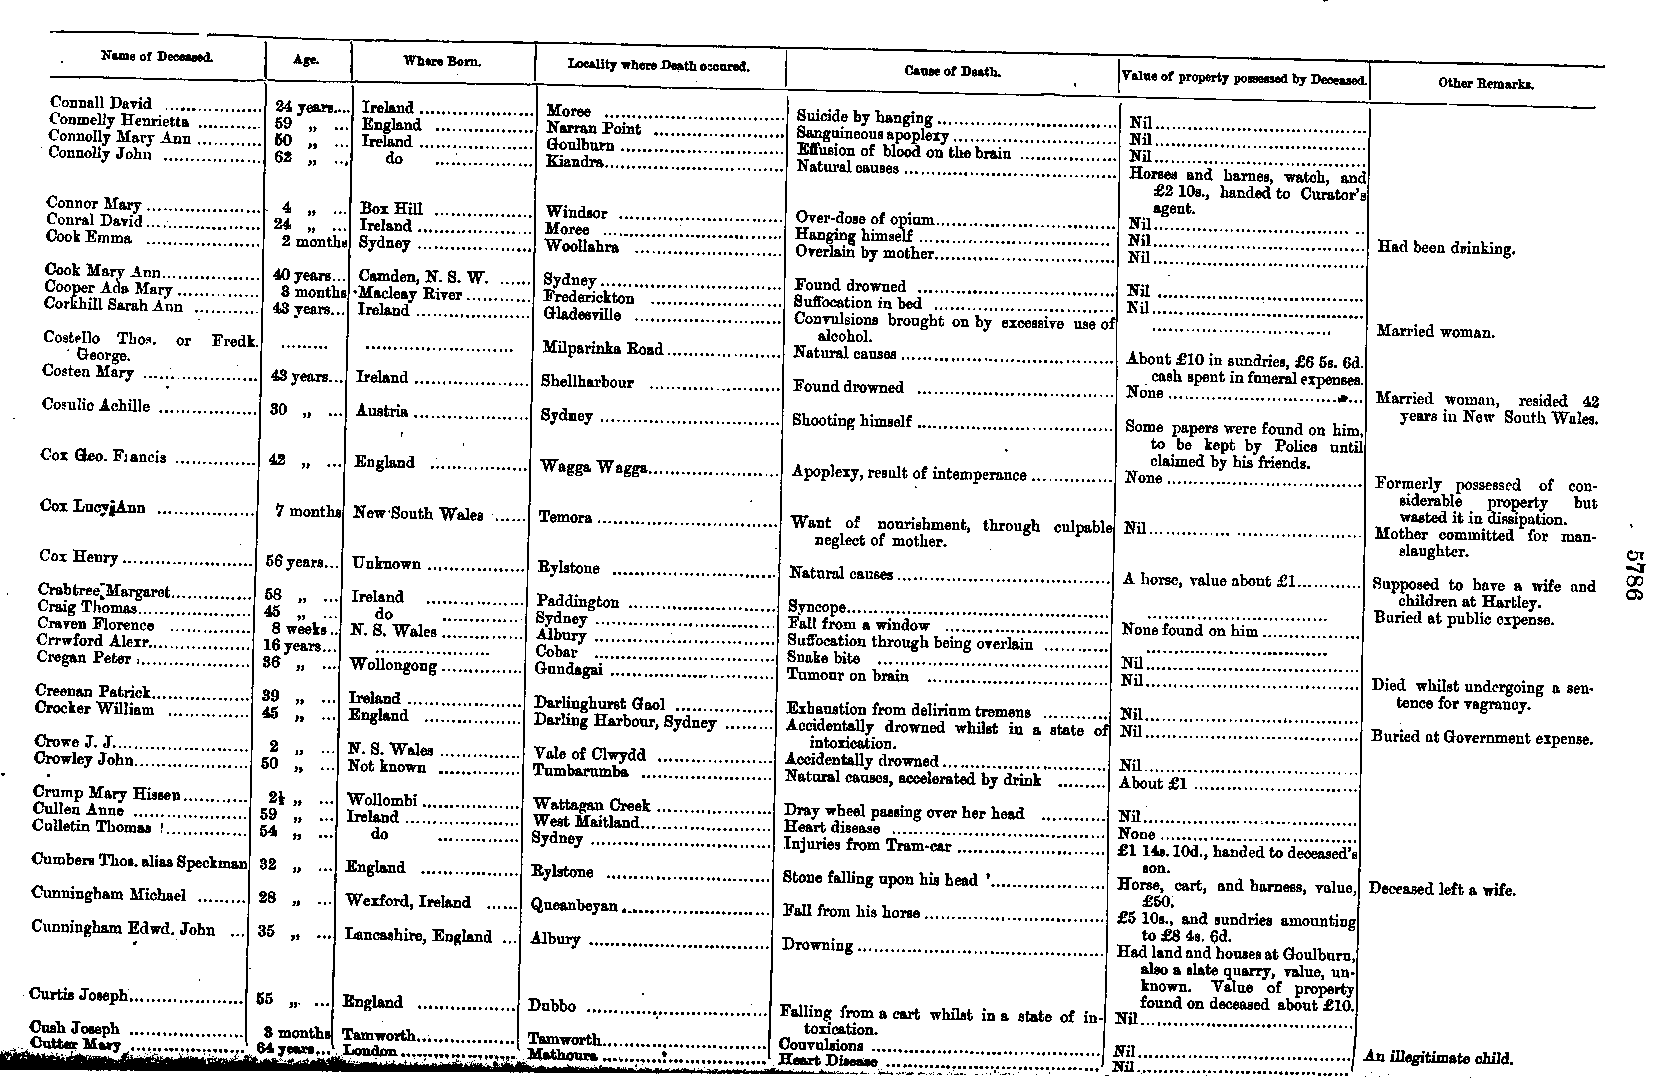 Name of Deceased. Age. Where Born. Locality where Death occured. Cause of Death. Value of property possessed by Deceased. Other Remarks.
Connall David ... 24 years... Ireland ... Moree ... Suicide by hanging ... Nil...
Conmelly Henrietta ... 59 „ ... England ... Narran Point ... Sanguineous apoplexy ... Nil...
Connolly Mary Ann ... 50 „ ... Ireland ... Goulburn ... Effusion of blood on the brain ... Nil...
Connolly John ... 62 „ ... do ... Kiandra... Natural causes ... Horses and harnes, watch, and
£2 10s., handed to Curator's
agent.
Connor Mary ... 4 „ ... Box Hill ... Windsor ... Over-dose of opium... Nil...
Conral David ... 24 „ ... Ireland ... Moree ... Hanging himself ... Nil...
Cook Emma ... 2 months Sydney ... Woollahra ... Overlain by mother... Nil... Had been drinking.
Cook Mary Ann... 40 years... Camden, N. S. W. ... Sydney ... Found drowned ... Nil ...
Cooper Ada Mary ... 8 months Macleay River ... Frederickton ... Suffocation in bed ... Nil...
Corkhill Sarah Ann ... 43 years... Ireland ... Gladesville ... Convulsions brought on by excessive use of ... Married woman.
alcohol.
Costello Thos. or Fredk. ... ... Milparinka Road ... Natural causes ... About £10 in sundries, £6 5s. 6d.
George.
cash spent in funeral expenses.
Costen Mary ... 43 years... Ireland ... Shellharbour ... Found drowned ... None ... Married woman, resided 42
years in New South Wales.
Cosulic Achille ... 30 „ ... Austria ... Sydney ... Shooting himself ... Some papers were found on him,
to be kept by Police until
claimed by his friends.
Cox Geo. Francis ... 42 „ ... England ... Wagga Wagga... Apoplexy, result of intemperance ... None ... Formerly possessed of con-
siderable property but
wasted it in dissipation.
Cox Lucy Ann ... 7 months New South Wales ... Temora ... Want of nourishment, through culpable Nil ... Mother committed for man-
neglect of mother.
slaughter.
Cox Henry ... 56 years... Unknown ... Rylstone ... Natural causes ... A horse, value about £1... Supposed to have a wife and
children at Hartley.
Crabtree Margaret... 58 „ ... Ireland ... Paddington ... Syncope... ... Buried at public expense.
Craig Thomas... 45 „ ... do ... Sydney ... Fall from a window ... None found on him ...
Craven Florence ... 8 weeks.. N. S. Wales ... Albury ... Suffocation through being overlain ... ...
Crrwford Alexr... 16 years... ... Cobar ... Snake bite ... Nil...
Cregan Peter ... 36 „ ... Wollongong ... Gundagai ... Tumour on brain ... Nil... Died whilst undergoing a sen-
tence for vagrancy.
Creenan Patrick... 39 „ ... Ireland ... Darlinghurst Gaol ... Exhaustion from delirium tremens ... Nil...
Crocker William ... 45 „ ... England ... Darling Harbour, Sydney ... Accidentally drowned whilst in a state of Nil... Buried at Government expense.
intoxication.
Crowe J. J... 2 „ ... N. S. Wales ... Vale of Clwydd ... Accidentally drowned ... Nil...
Crowley John... 50 „ ... Not known ... Tumbarumba ... Natural causes, accelerated by drink ... About £1 ...
Crump Mary Hissen ... 2½ „ ... Wollombi ... Wattagan Creek ... Dray wheel passing over her head ... Nil...
Cullen Anne ... 59 „ ... Ireland ... West Maitland... Heart disease ... None ...
Culletin Thomas ... 54 „ ... do ... Sydney ... Injuries from Tram-car ... £1 14s. 10d., handed to deceased's
son.
Cumbers Thos. alias Speckman 32 „ ... England ... Rylstone ... Stone falling upon his head ... Horse, cart, and harness, value, Deceased left a wife.
£50.
Cunningham Michael ... 28 „ ... Wexford, Ireland ... Queanbeyan ... Fall from his horse ... £5 10s., and sundries amounting
to £8 4s. 6d.
Cunningham Edwd. John ... 35 „ ... Lancashire, England ... Albury ... Drowning ... Had land and houses at Goulburn,
also a slate quarry, value, un-
known. Value of property
found on deceased about £10.
Curtis Joseph... 55 „ ... England ... Dubbo ... Falling from a cart whilst in a state of in- Nil...
toxication.
Cush Joseph ... 3 months Tamworth... Tamworth... Convulsions ... Nil... An illegitimate child.
Cutter Mary ... 64 years... London ... Mathoura ... Heart Disease ... Nil...
5786